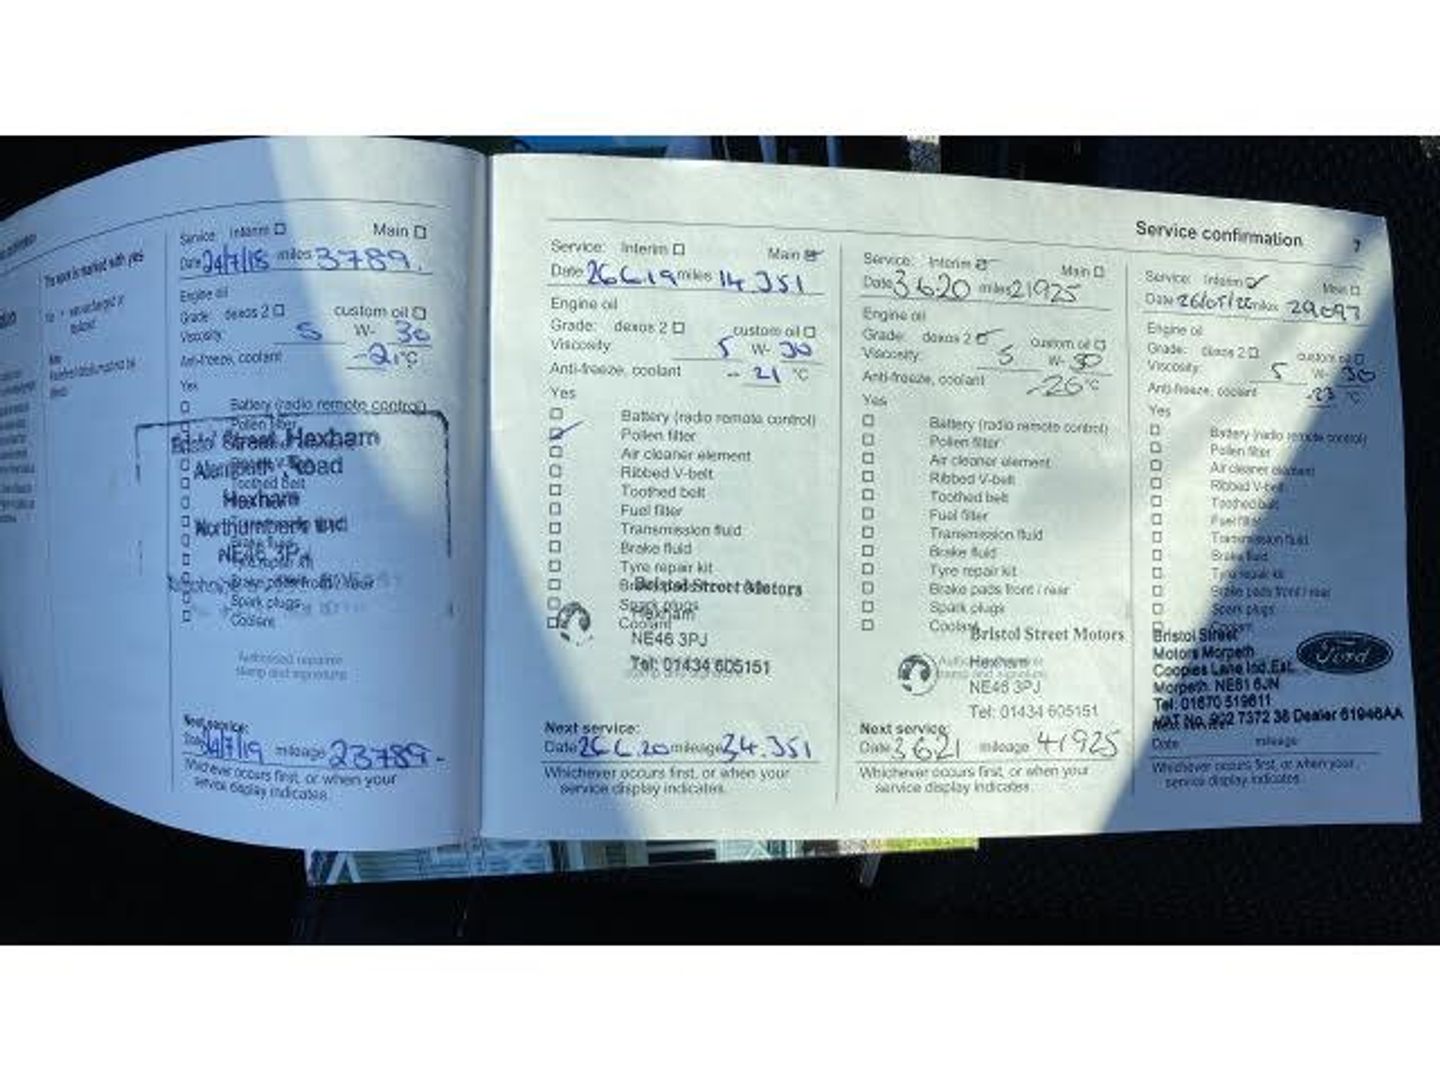 The work is marked with yes
Service: Interim Main
Date 24/7/18 miles 3789.
Engine oil
Grade: dexos 2 custom oil
Viscosity 5 W- 30
Anti-freeze, coolant -21 °C
Yes
Battery (radio remote control)
Pollen filter
Bristol Street Hexham
Road
Toothed belt
Hexham
Northumberland
NE46 3PJ
Tyre repair kit
Spark plugs
Coolant
Authorised repairer
stamp and signature
Next service:
Date 24/7/19 mileage 23789-
Whichever occurs first, or when your
service display indicates.
Service: Interim Main
Date 26 6 19 miles 14.351
Engine oil
Grade: dexos 2 custom oil
Viscosity 5 W- 30
Anti-freeze, coolant - 21 °C
Yes
Battery (radio remote control)
Pollen filter
Air cleaner element
Ribbed V-belt
Toothed belt
Fuel filter
Transmission fluid
Brake fluid
Tyre repair kit
Bristol Street Motors
Spark plugs
Hexham
Coolant
NE46 3PJ
Tel: 01434 605151
stamp and signature
Next service:
Date 26 6 20 mileage 34.351
Whichever occurs first, or when your
service display indicates.
Service confirmation 7
Service: Interim Main
Date 3 6 20 miles 21925
Engine oil
Grade: dexos 2 custom oil
Viscosity: 5 W- 30
Anti-freeze, coolant -26 °C
Yes
Battery (radio remote control)
Pollen filter
Air cleaner element
Ribbed V-belt
Toothed belt
Fuel filter
Transmission fluid
Brake fluid
Tyre repair kit
Brake pads front / rear
Spark plugs
Coolant
Bristol Street Motors
Hexham
NE46 3PJ
Tel: 01434 605151
Next service:
Date 3 6 21 mileage 41925
Whichever occurs first, or when your
service display indicates.
Service: Interim Main
Date miles 29,097
Engine oil
Grade: dexos 2 custom oil
Viscosity: 5 W- 30
Anti-freeze, coolant -23 °C
Yes
Battery (radio remote control)
Pollen filter
Air cleaner element
Ribbed V-belt
Toothed belt
Fuel filter
Transmission fluid
Brake fluid
Tyre repair kit
Brake pads front / rear
Spark plugs
Coolant
Bristol Street
Motors Morpeth
Coopies Lane Ind. Est.
Morpeth. NE61 6JN
Tel: 01670 519611
VAT No. 902 7372 36 Dealer 61946AA
Ford
Date mileage
Whichever occurs first, or when your
service display indicates.